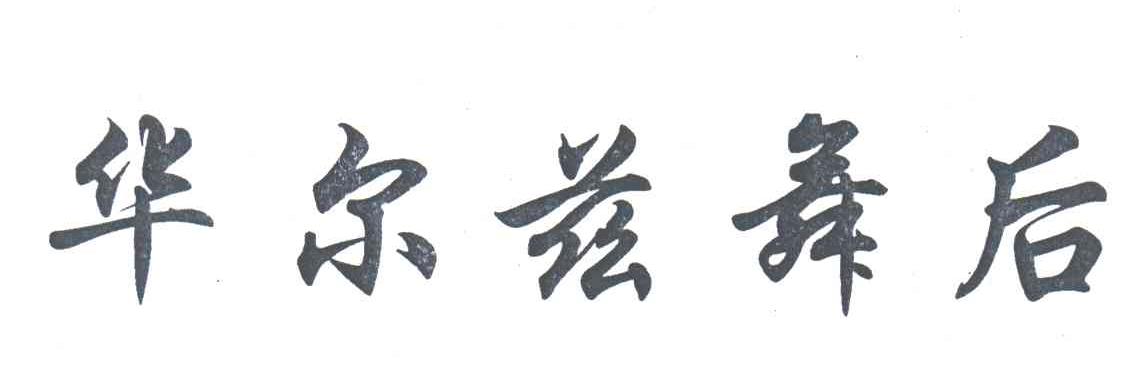 华尔兹舞后